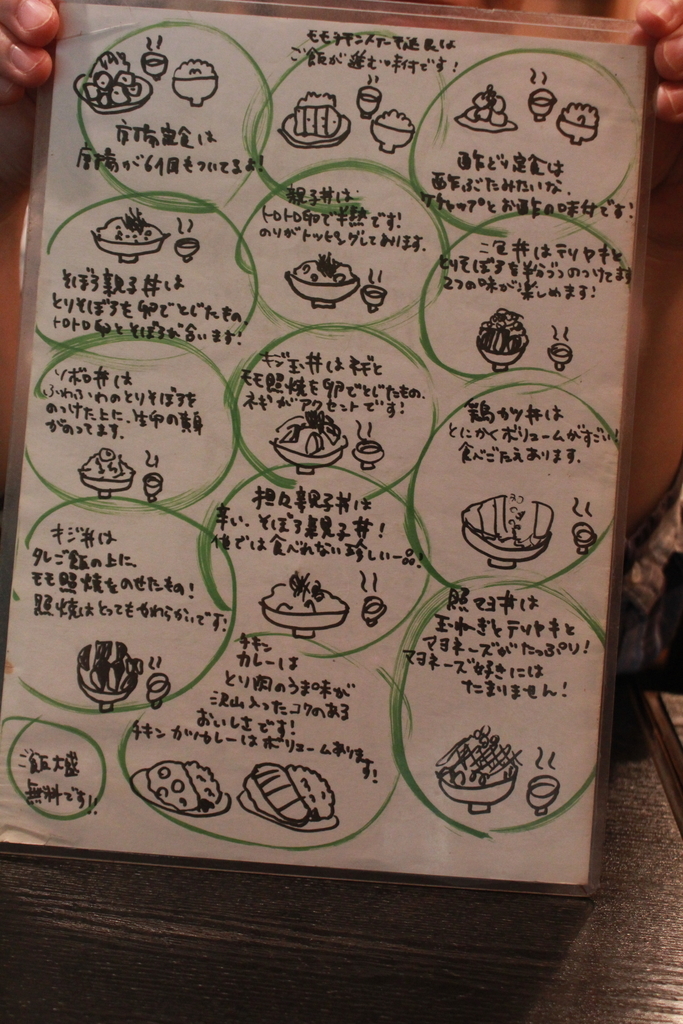 ご飯が進む味付です!
唐揚定食は
唐揚が6個もついてるよ!
酢どり定食は
酢ぶたみたいな、
ケチャップとお酢の味付です!
親子丼は
トロトロ卵で半熟です!
のりがトッピングしております。
そぼろ親子丼は
とりそぼろを卵でとじたもの
トロトロ卵とそぼろが合います!
二色丼はテリヤキと
とりそぼろを半分づつのっけてます
2つの味が楽しめます!
ソボロ丼は
ふわふわのとりそぼろを
のっけた上に、生卵の黄身
がのってます。
キジ玉丼はネギと
モモ照焼を卵でとじたもの、
ネギがアクセントです!
鶏カツ丼は
とにかくボリュームがすごい!
食べごたえあります。
キジ丼は
タレご飯の上に、
モモ照焼をのせたもの!
照焼はとってもやわらかいです!
担々親子丼は
辛い、そぼろ親子丼!
他では食べれない珍しい一品!
照マヨ丼は
玉ねぎとテリヤキと
マヨネーズがたっぷり!
マヨネーズ好きには
たまりません!
チキン
カレーは
とり肉のうま味が
沢山入ったコクのある
おいしさです!
チキンカツカレーはボリュームあります!
ご飯大盛
無料です!!